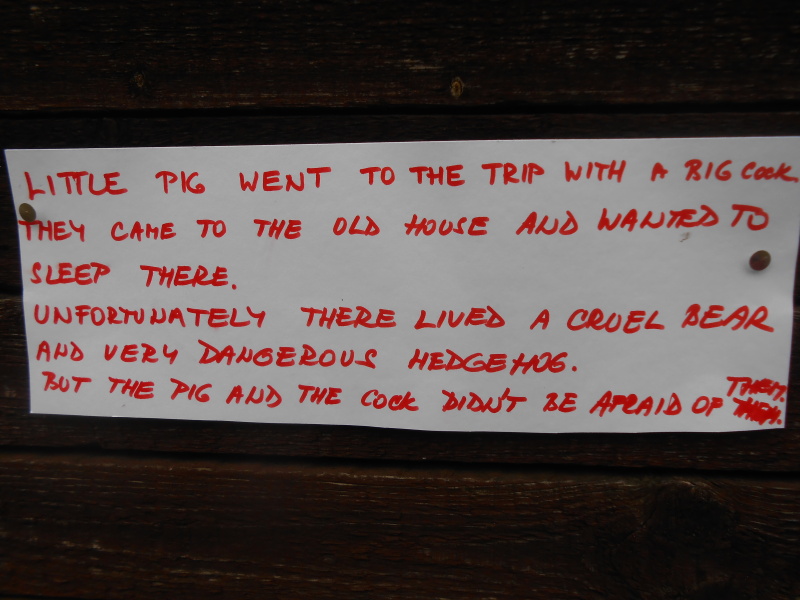 LITTLE PIG WENT TO THE TRIP WITH A BIG COCK.
THEY CAME TO THE OLD HOUSE AND WANTED TO
SLEEP THERE.
UNFORTUNATELY THERE LIVED A CRUEL BEAR
AND VERY DANGEROUS HEDGEHOG.
BUT THE PIG AND THE COCK DIDN'T BE AFRAID OF THEM.